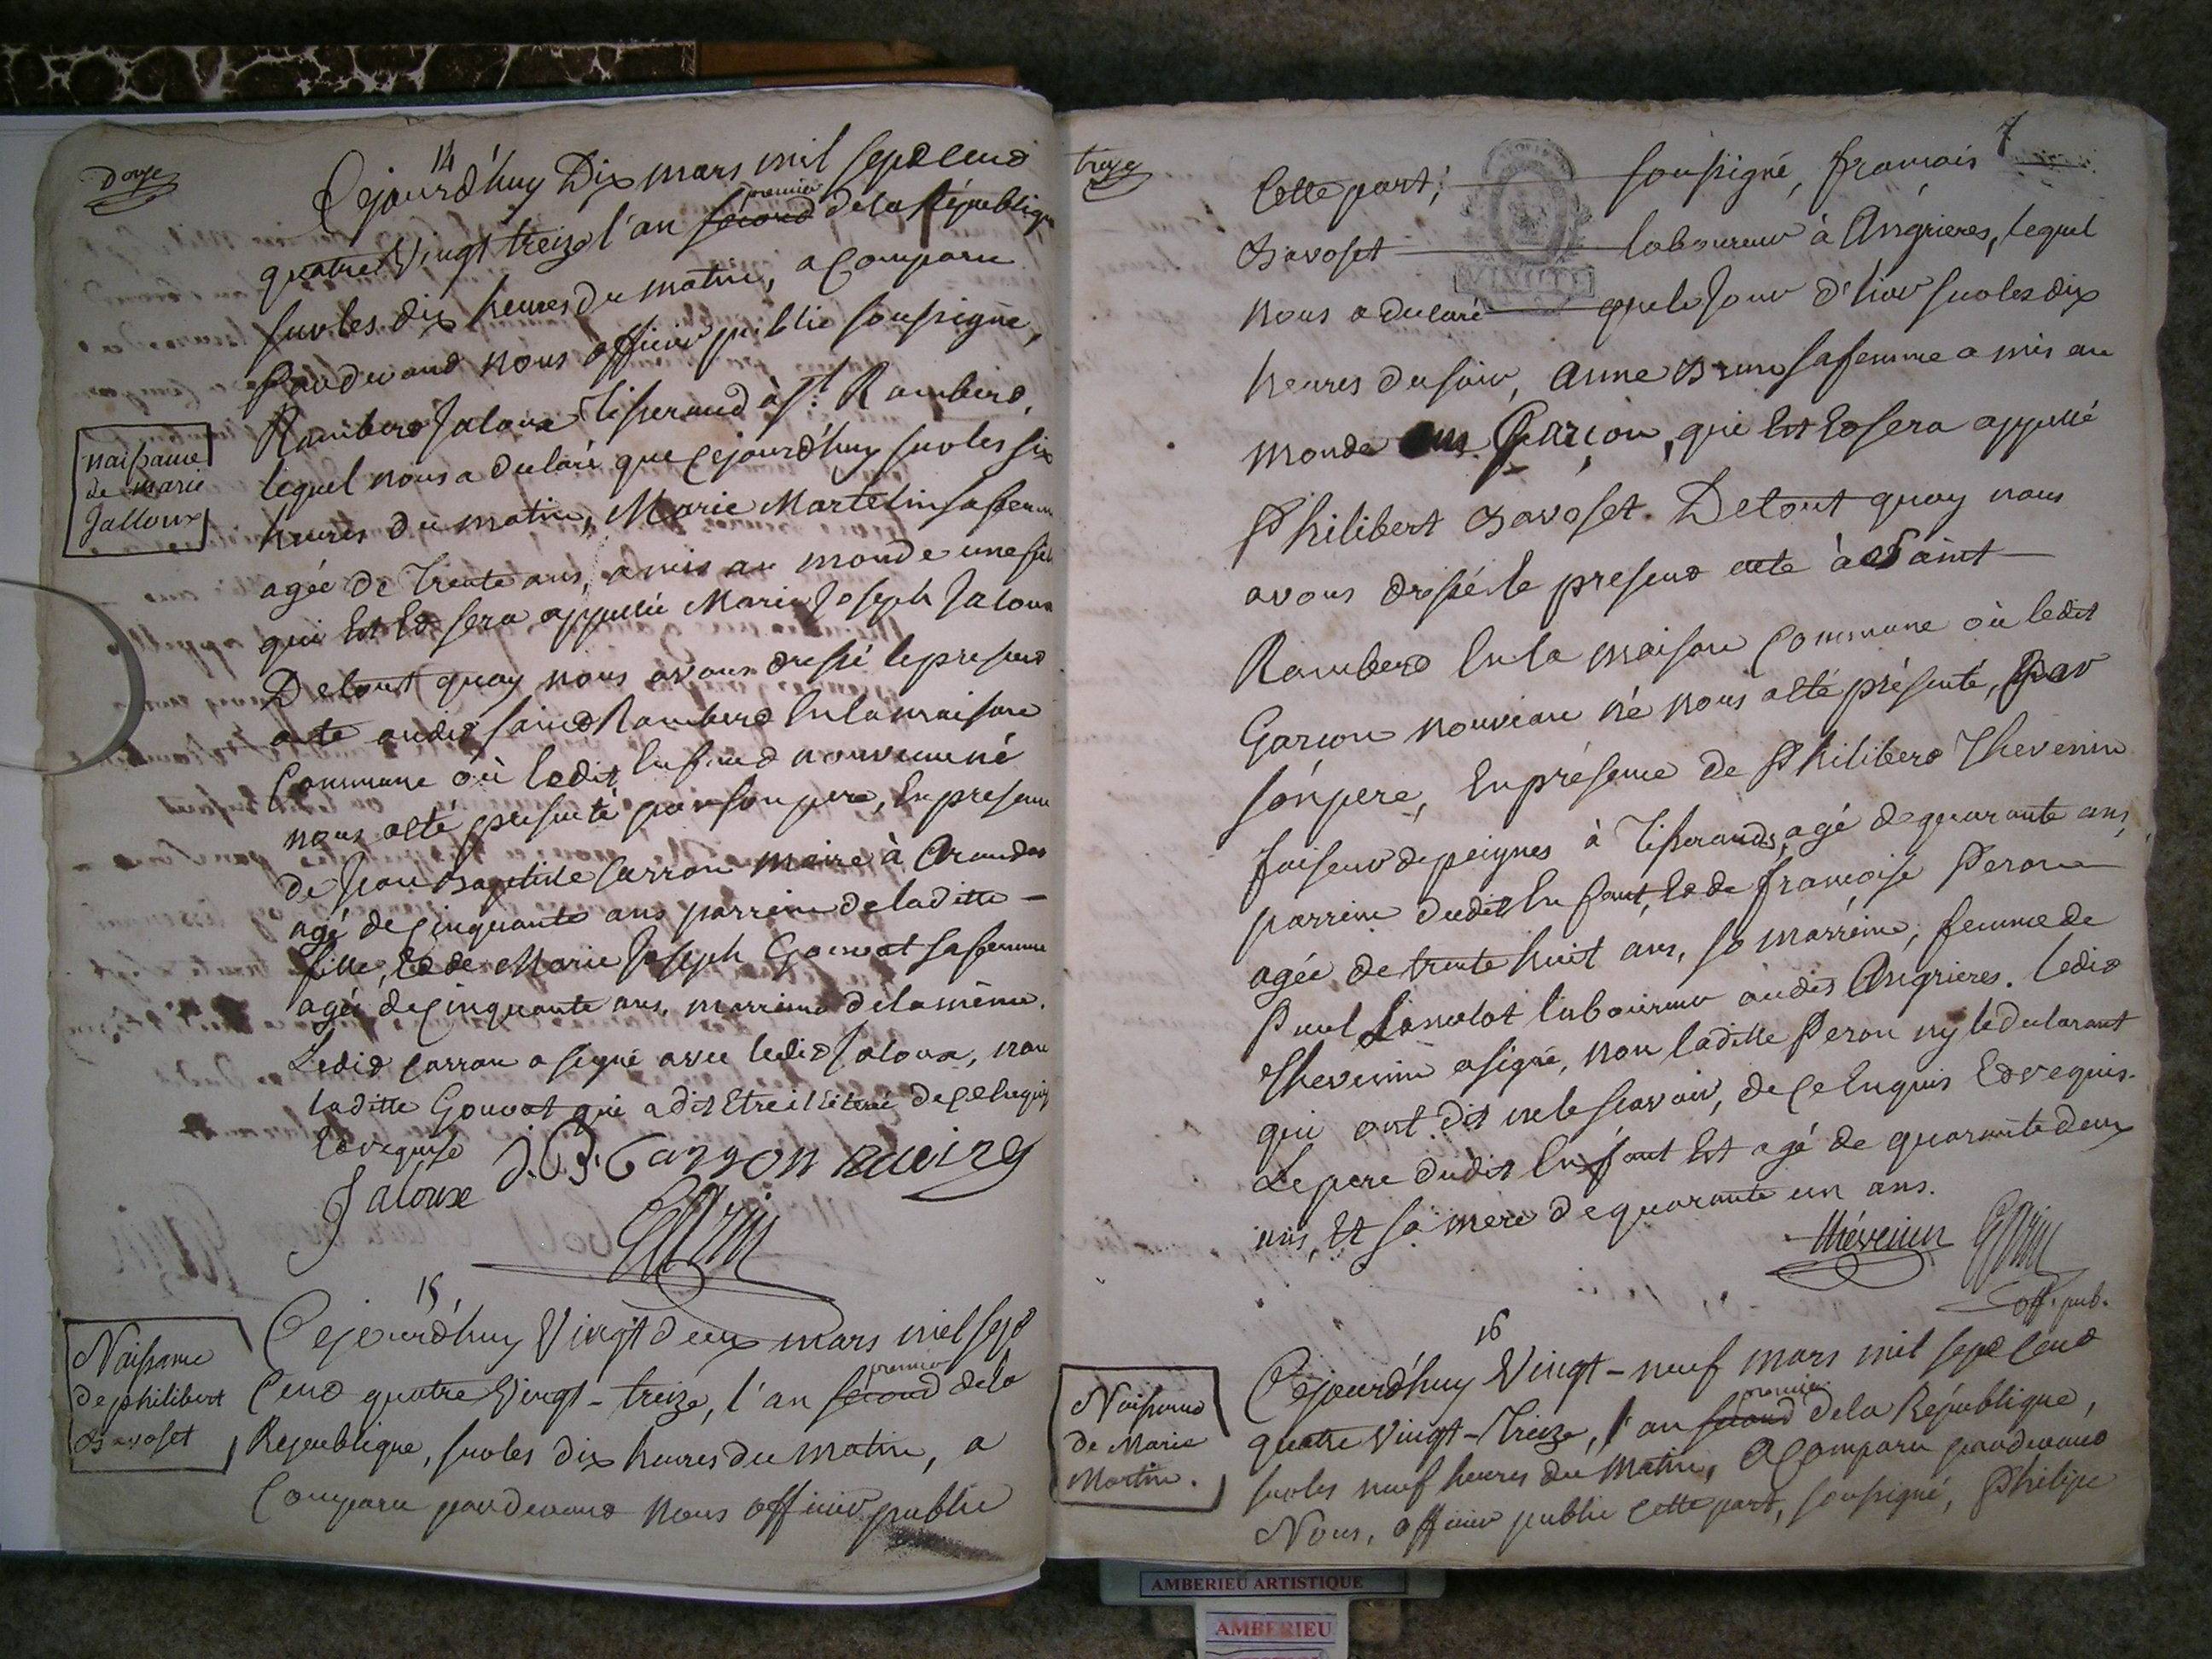 Doze
14
Cejourd'huy Dix mars mil sept cend
quatre Vingt treize l'an second premier de la République
sur les dix heures du matin, a Comparu
Pardevand nous officier public soussigné,
Rambert Jaloux Tisserand à St. Rambert,
lequel nous a declaré que Cejourd'huy sur les six
heures du matin, Marie Martelin sa femme
agée de Trente ans, a mis au monde une fille
qui Est Et sera appellée Marie Joseph Jaloux
De tout quoy nous avons dressé le present
acte audit saind Rambert En la maison
Commune où ledit Enfand nouveau né
nous a été presenté par son pere, En presence
de Jean Baptiste Carron maire à Arandas
agé de Cinquante ans parrein de laditte
fille, Et de Marie Joseph Gouvat sa femme
agée de Cinquante ans, marreine de la même.
Ledit Carron a signé avec ledit Jaloux, non
laditte Gouvat qui a dit Etre illiterée de ce Enquise
Et requise
J. B. Carron maire
Jaloux
naissance
de marie
Jalloux
15
Cejourd'huy Vingt deux mars mil sept
Cend quatre Vingt-treize, l'an second premier de la
Republique, sur les dix heures du matin, a
Comparu pardevand Nous officier public
Naissance
de philibert
Savoset
treze
7
Cette part, soussigné, francois
Savoset laboureur à Angrieres, lequel
nous a declaré que le Jour d'hier sur les dix
heures du soir, Anne Brun sa femme a mis au
monde un Garçon, qui Est Et sera appellé
Philibert Savoset. De tout quoy nous
avons dressé le present acte à Saint
Rambert En la maison Commune où ledit
Garçon nouveau né nous a été présenté, Par
son pere, En présence de Philibert Thevenin
faiseur de peignes à Tisserands, agé de quarante ans,
parrein dudit Enfant, Et de françoise Peron
agée de trente huit ans, sa marreine, femme de
Paul Lancelot laboureur audit Angrieres. Ledit
Thevenin a signé, non laditte Peron ny le declarant
qui ont dit ne le scavoir, de ce Enquis Et requis.
Le pere dudit Enfant Est agé de quarante deux
ans, Et sa mere de quarante un ans.
thévenin
off. pub.
MINUTE
16
Cejourd'huy Vingt-neuf mars mil sept cend
quatre Vingt-Treize, l'an second premier de la République,
sur les neuf heures du Matin, a Comparu pardevand
Nous, officier public Cette part, soussigné, Philipe
Naissance
de Marie
Martin.
AMBERIEU ARTISTIQUE
AMBERIEU